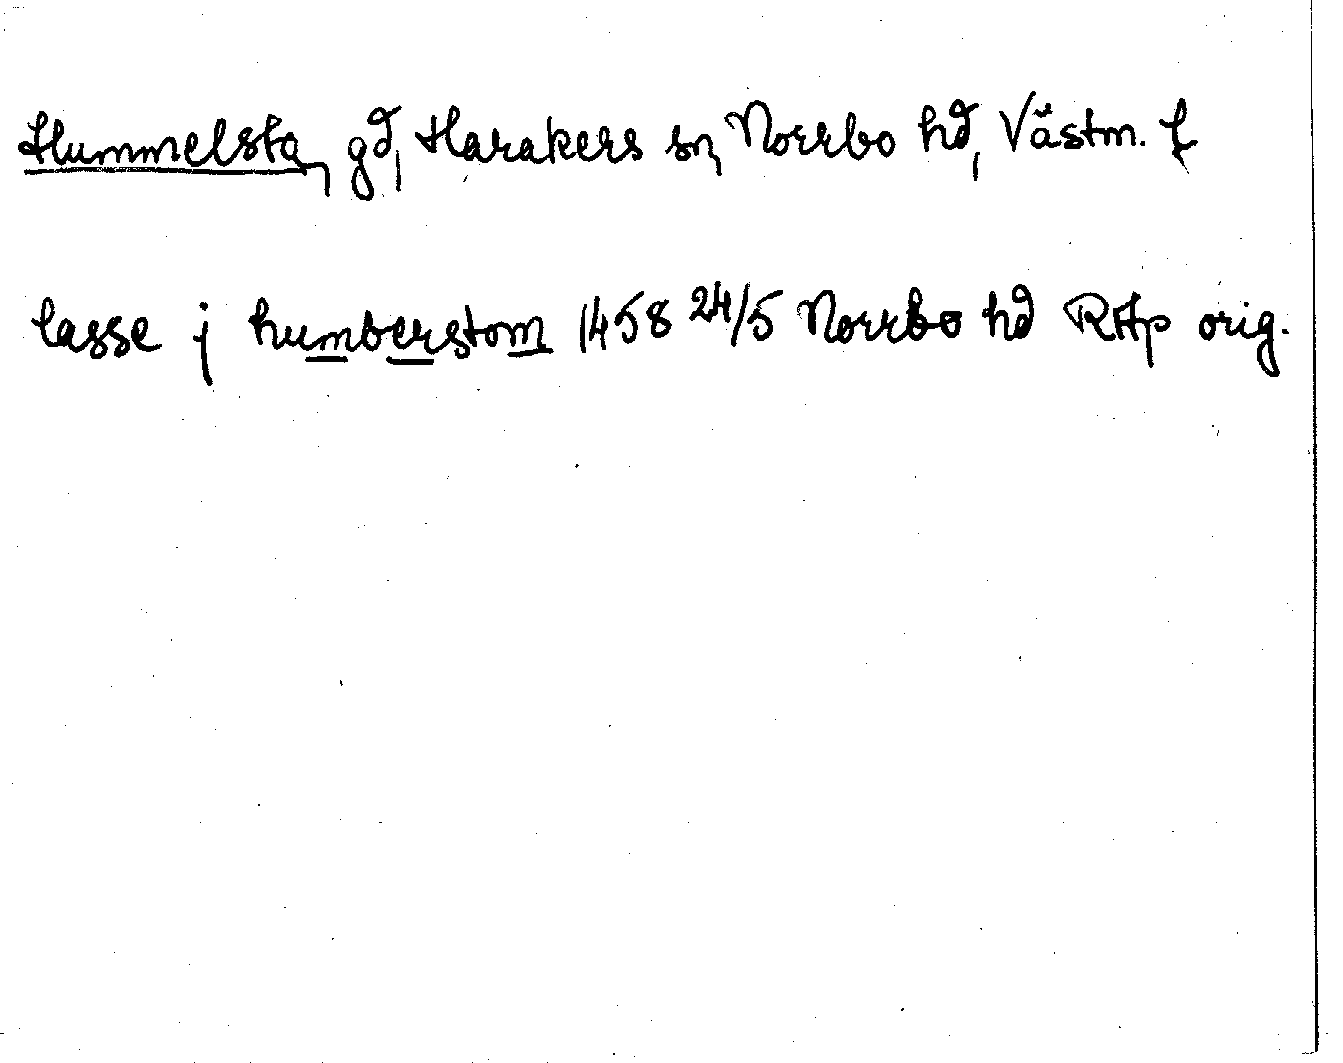 Hummelsta, gd, Harakers sn, Norrbo hd, Västm. l
lasse j humberstom 1458 24/5 Norrbo hd RAp orig.